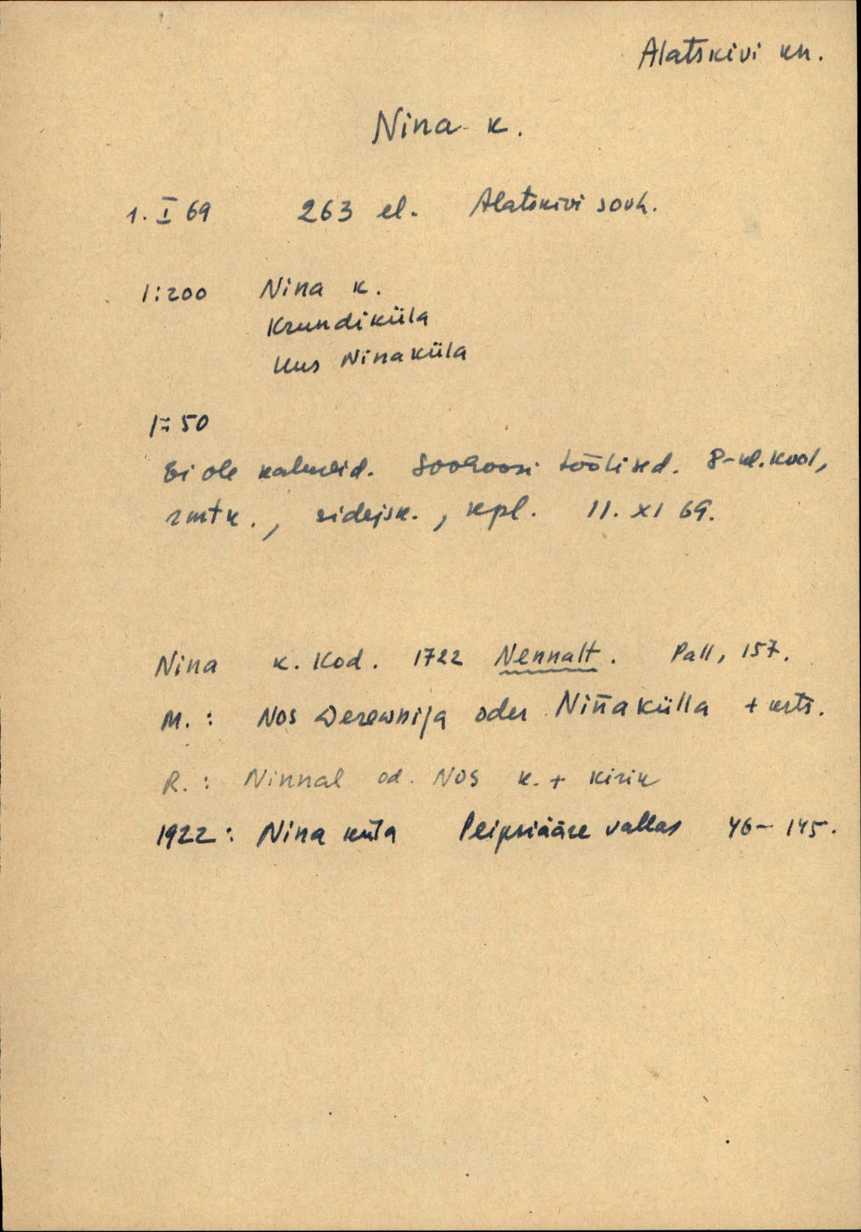 Alatskivi kn.
Nina k.
1. I 69 263 el. Alatskivi sovh.
1:200 Nina k.
Krundiküla
Uus Ninaküla
1:50
Ei ole kalureid. Sovhoosi töölised. 8-kl. kool,
rmtk., sidejsk., kpl. 11. XI 69.
Nina k. Kod. 1722 Nennalt. Pall, 157.
M.: Nos Derewnija oder Nin̄akülla + krts.
R.: Ninnal od. Nos k. + kirik
1922: Nina küla Peipsiääre vallas 46-145.